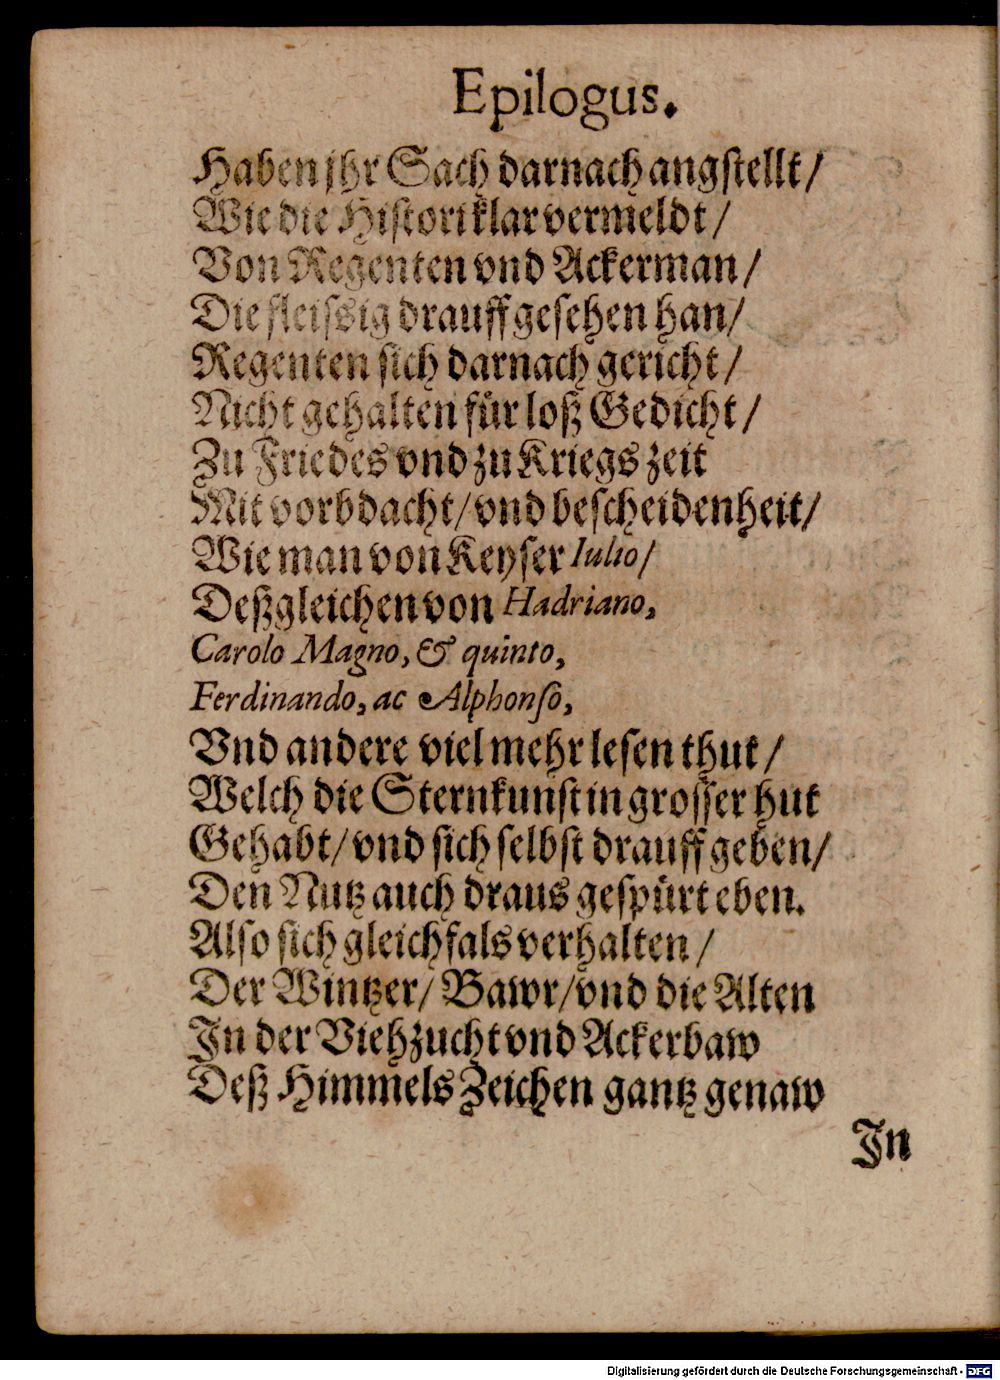 Epilogus.
Haben jhr Sach darnach angstellt/
Wie die Histori klar vermeldt/
Von Regenten vnd Ackerman/
Die fleissig drauff gesehen han/
Regenten sich darnach gericht/
Nicht gehalten für loß Gedicht/
Zu Friedes vnd zu Kriegs zeit
Mit vorbdacht/vnd bescheidenheit/
Wie man von Keyser Iulio/
Deßgleichen von Hadriano,
Carolo Magno, & quinto,
Ferdinando, ac Alphonso,
Vnd andere viel mehr lesen thut/
Welch die Sternkunst in grosser hut
Gehabt/vnd sich selbst drauff geben/
Den Nutz auch draus gespürt eben.
Also sich gleichfals verhalten/
Der Wintzer/ Bawr/vnd die Alten
In der Viehzucht vnd Ackerbaw
Deß Himmels Zeichen gantz genaw
In
Digitalisierung gefördert durch die Deutsche Forschungsgemeinschaft - DFG